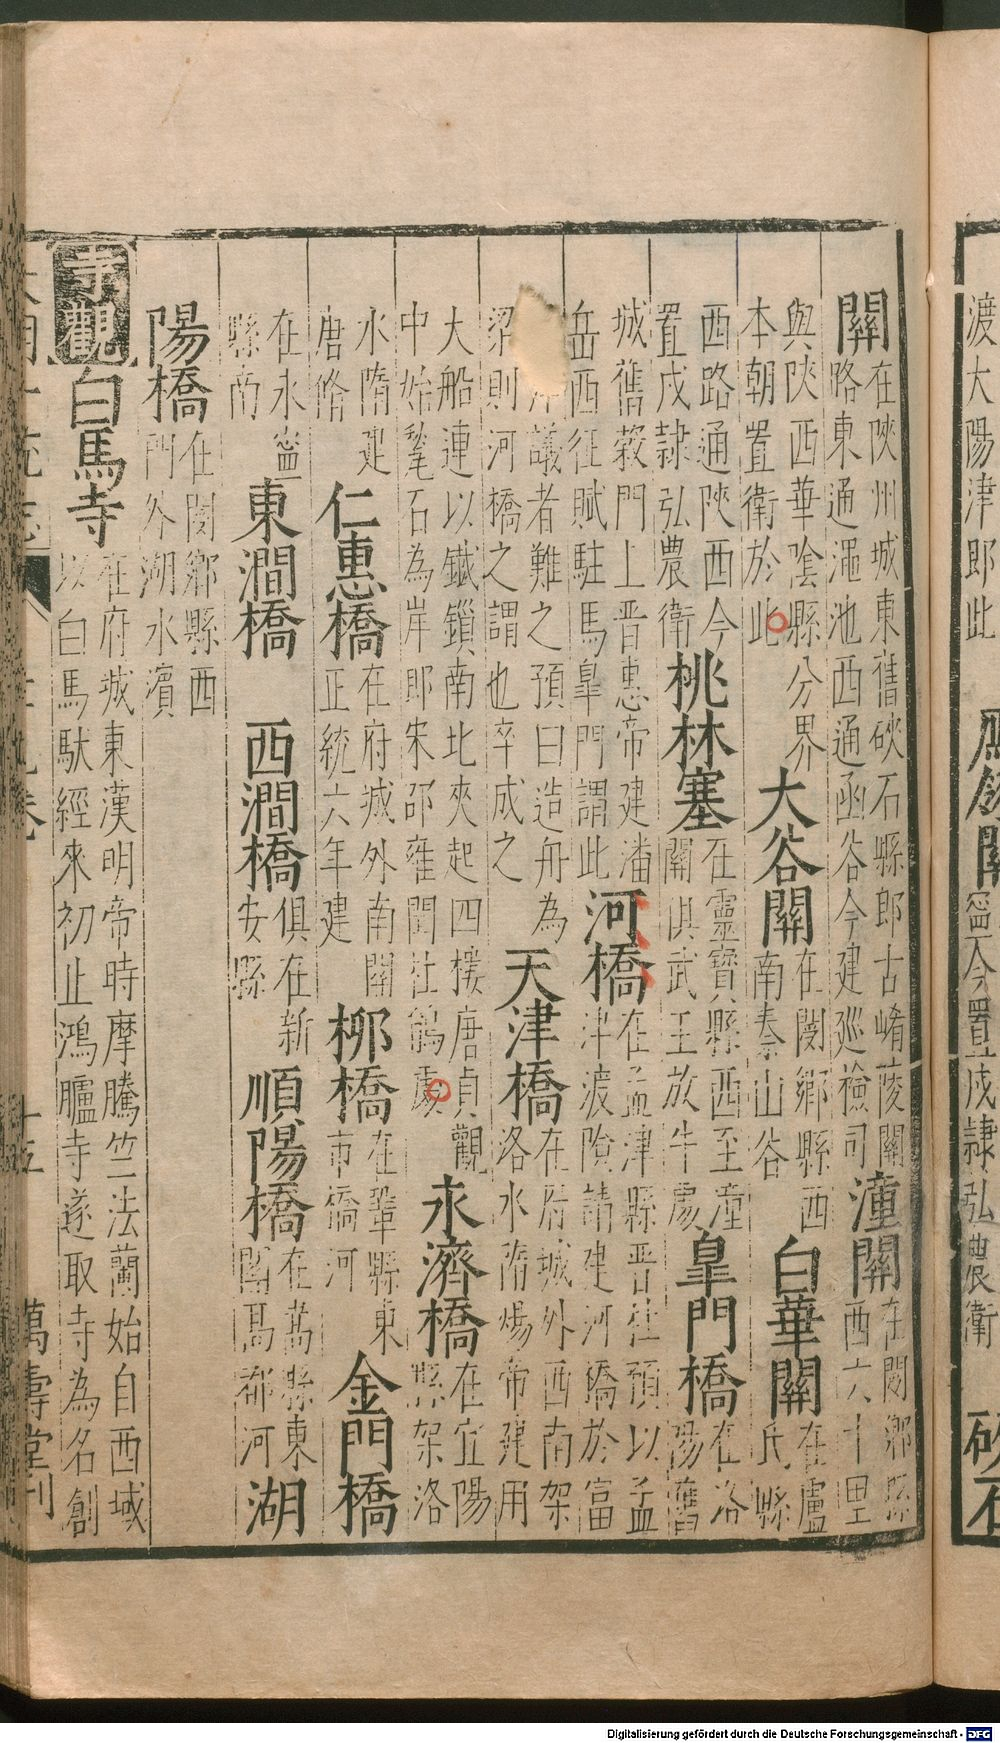 渡大陽津即此
今置戍隸弘農衛
關
在陜州城東舊硤石縣即古崤陵關
略東通澠池西通函谷今建巡檢司
潼關
在閿鄉縣
西六十里
與陜西華陰縣分界
本朝置衛於此
大谷關
在閿鄉縣西
南秦山谷
白華關
在盧
氏縣
西路通陜西今
置戍隸弘農衛
桃林塞
在靈寶縣西至潼
關俱武王放牛處
皐門橋
在洛
陽舊
城舊榖門上晋惠帝建潘
岳西征賦駐馬皐門謂此
河橋
在孟津縣晋杜預以孟
津渡險請建河橋於富
津議者難之預曰造舟為
梁則河橋之謂也卒成之
天津橋
在府城外西南架
洛水隋煬帝建用
大船連以鐵鎖南北夾起四樓唐貞觀
中始鼇石為岸即宋邵雍聞杜鵑處
永濟橋
在宜陽
縣架洛
水隋建
唐脩
仁惠橋
在府城外南關
正統六年建
柳橋
在鞏縣東
市橋河
金門橋
在永寧
縣南
東澗橋
西澗橋
俱在新
安縣
順陽橋
在嵩縣東
高都河
湖
陽橋
在閿鄉縣西
門外湖水濱
寺觀
白馬寺
在府城東漢明帝時摩騰竺法蘭始自西域
以白馬馱經來初止鴻臚寺遂取寺為名創
大明一統志
十五
萬壽堂刊
Digitalisierung gefördert durch die Deutsche Forschungsgemeinschaft - DFG